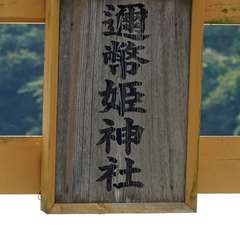 邇幣姫神社